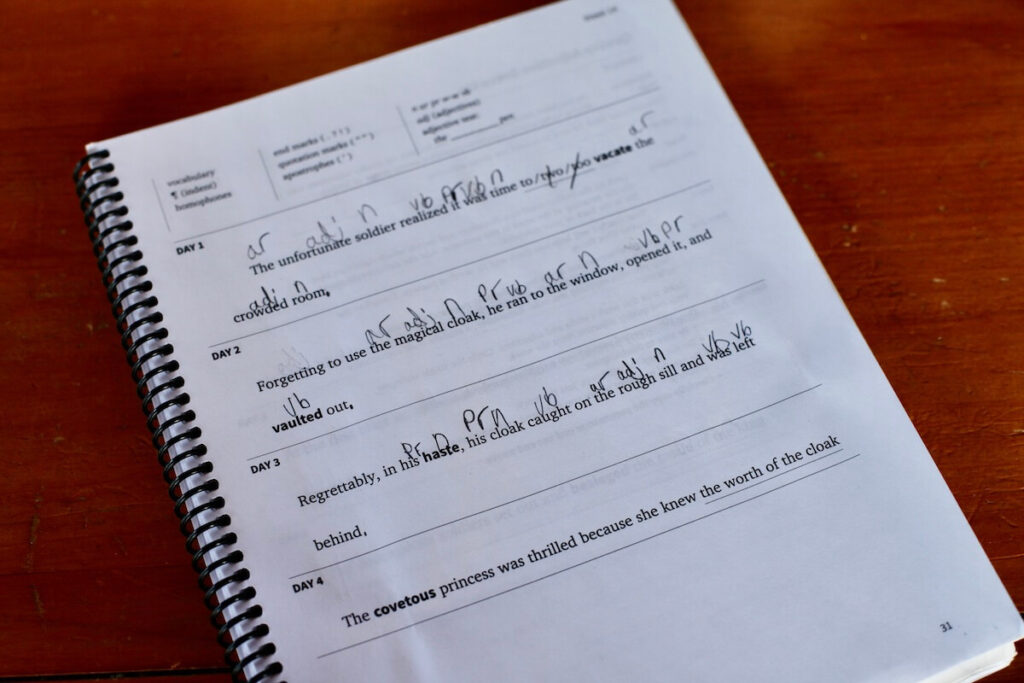 Week
vocabulary
¶ (indent)
homophones
end marks (. ? !)
quotation marks (" ")
apostrophes (')
n ar pr w-w vb
adj (adjectives)
adjective test:
the ______ pen
DAY 1
ar adj n vb pr vb n ar
The unfortunate soldier realized it was time to/two/too vacate the
adj n
crowded room.
DAY 2
ar adj n pr vb ar n vb pr
Forgetting to use the magical cloak, he ran to the window, opened it, and
vb
vaulted out.
DAY 3
pr n pr n vb ar adj n vb vb
Regrettably, in his haste, his cloak caught on the rough sill and was left
behind.
DAY 4
The covetous princess was thrilled because she knew the worth of the cloak
31